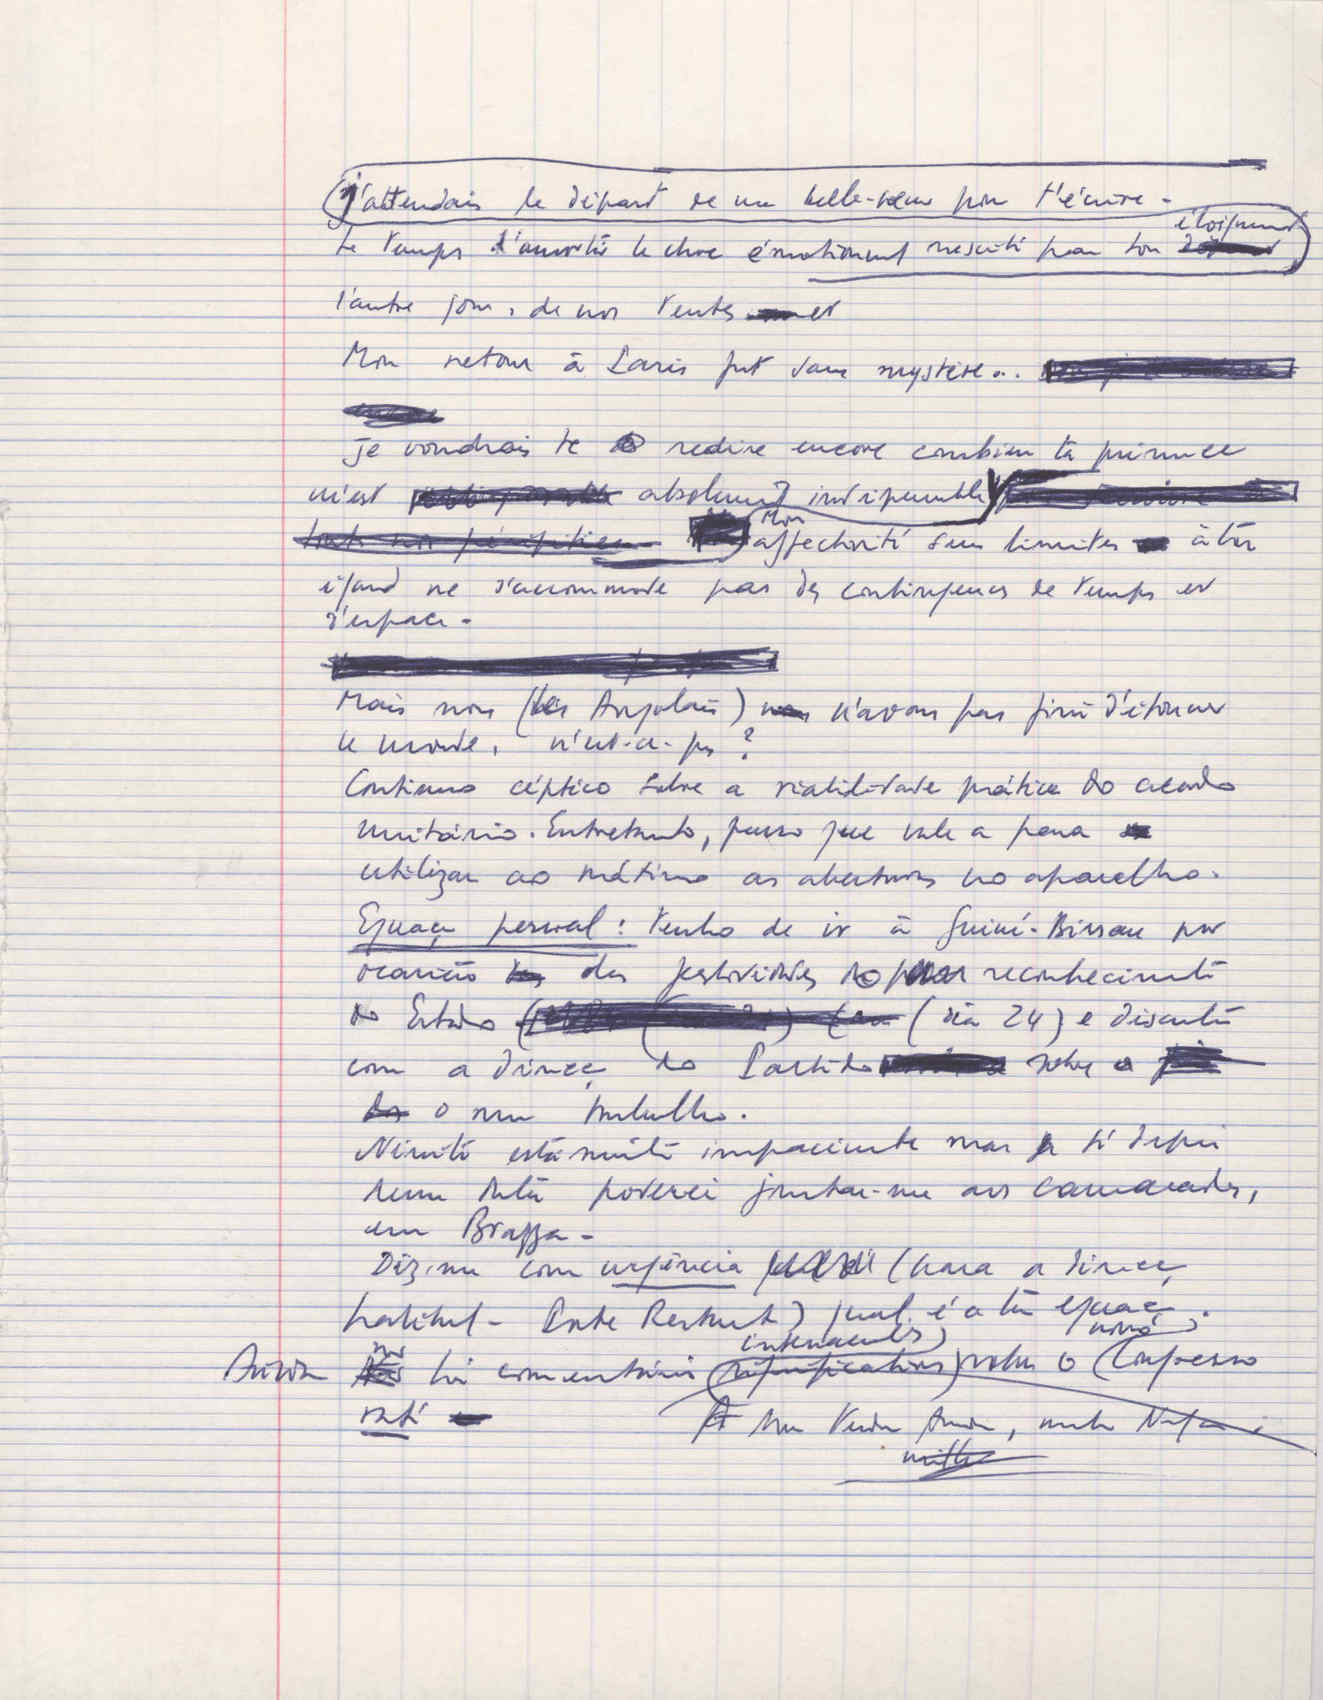 J'attendais le départ de ma belle-sœur pour t'écrire -
Le temps d'amortir le choc émotionnel suscité par ton éloignement
l'autre jour, de nos terres et
Mon retour à Paris fut sans mystère...
Je voudrais te redire encore combien ta présence
m'est absolument indispensable
Mon affectivité sans limites à ton
égard ne s'accommode pas des contingences de temps et
d'espace -
Mais nous (les Angolais) n'avons pas fini d'étonner
le monde, n'est-ce-pas ?
Continuo céptico sobre a viabilidade prática do acordo
unitário. Entretanto, penso que vale a pena
utilizar ao máximo as aberturas no aparelho.
Equaç pessoal : Tenho de ir à Guiné-Bissau por
ocasião das festividades do reconhecimento
do Estado (dia 24) e discutir
com a direcç do Partido sobre
o meu trabalho.
está muito impaciente mas só depois
poderei juntar-me aos camaradas,
em Brazza -
Diz-me com urgência (para a direcç
Poste Restante) qual é a tua equaç.
li comentários sobre o Congresso